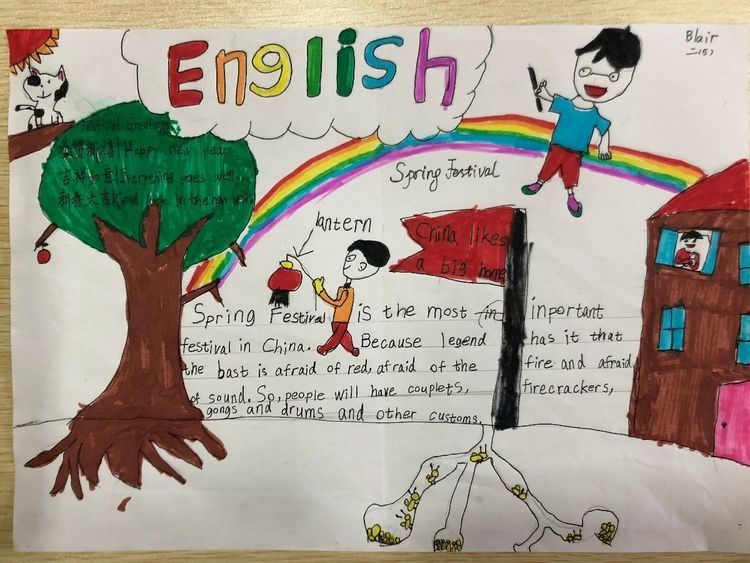 English
Blair
二(5)
Festival Greetings
恭贺新禧|Happy new year
吉祥如意|Everything goes well
新春大吉|Good luck in the new year
Spring Festival
lantern
China likes
a big home
Spring Festival is the most (in inportant
festival in China. Because legend has it that
the bast is afraid of red, afraid of the fire and afraid
of sound. So, people will have couplets, firecrackers,
gongs and drums and other customs.